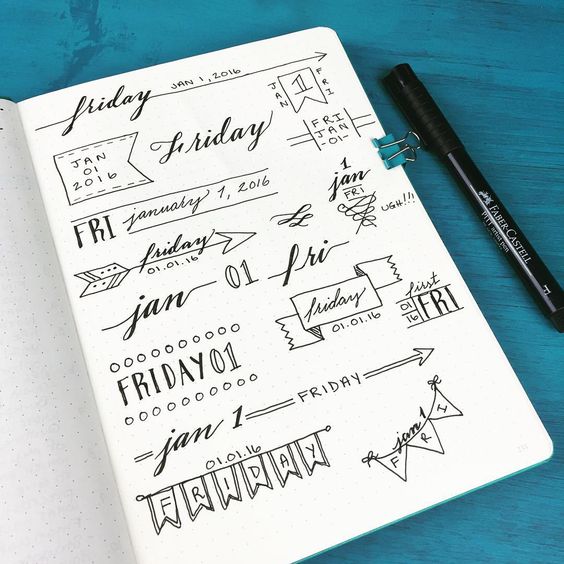 JAN 1, 2016
friday
JAN
1
FRI
JAN
01
2016
Friday
FRI
JAN
-01-
FRI january 1, 2016
1
jan
FRI
UGH!!!
friday
01.01.16
jan 01
fri
friday
01.01.16
first
01
16
FRI
FRIDAY 01
jan 1
FRIDAY
01.01.16
FRIDAY
jan 1
FRI
FABER-CASTELL
PITT artist pen
F